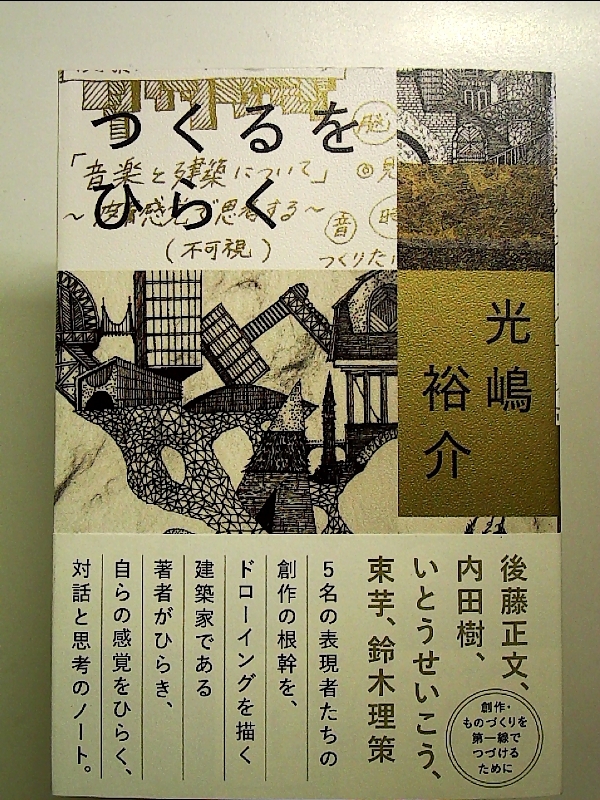 つくるを
ひらく
「音楽と建築について」
〜皮膚感で思考する〜
(不可視)
脳
音
時
つくりた
光嶋
裕介
後藤正文、
内田樹、
いとうせいこう、
束芋、鈴木理策
5名の表現者たちの
創作の根幹を、
ドローイングを描く
建築家である
著者がひらき、
自らの感覚をひらく、
対話と思考のノート。
創作・
ものづくりを
第一線で
つづける
ために